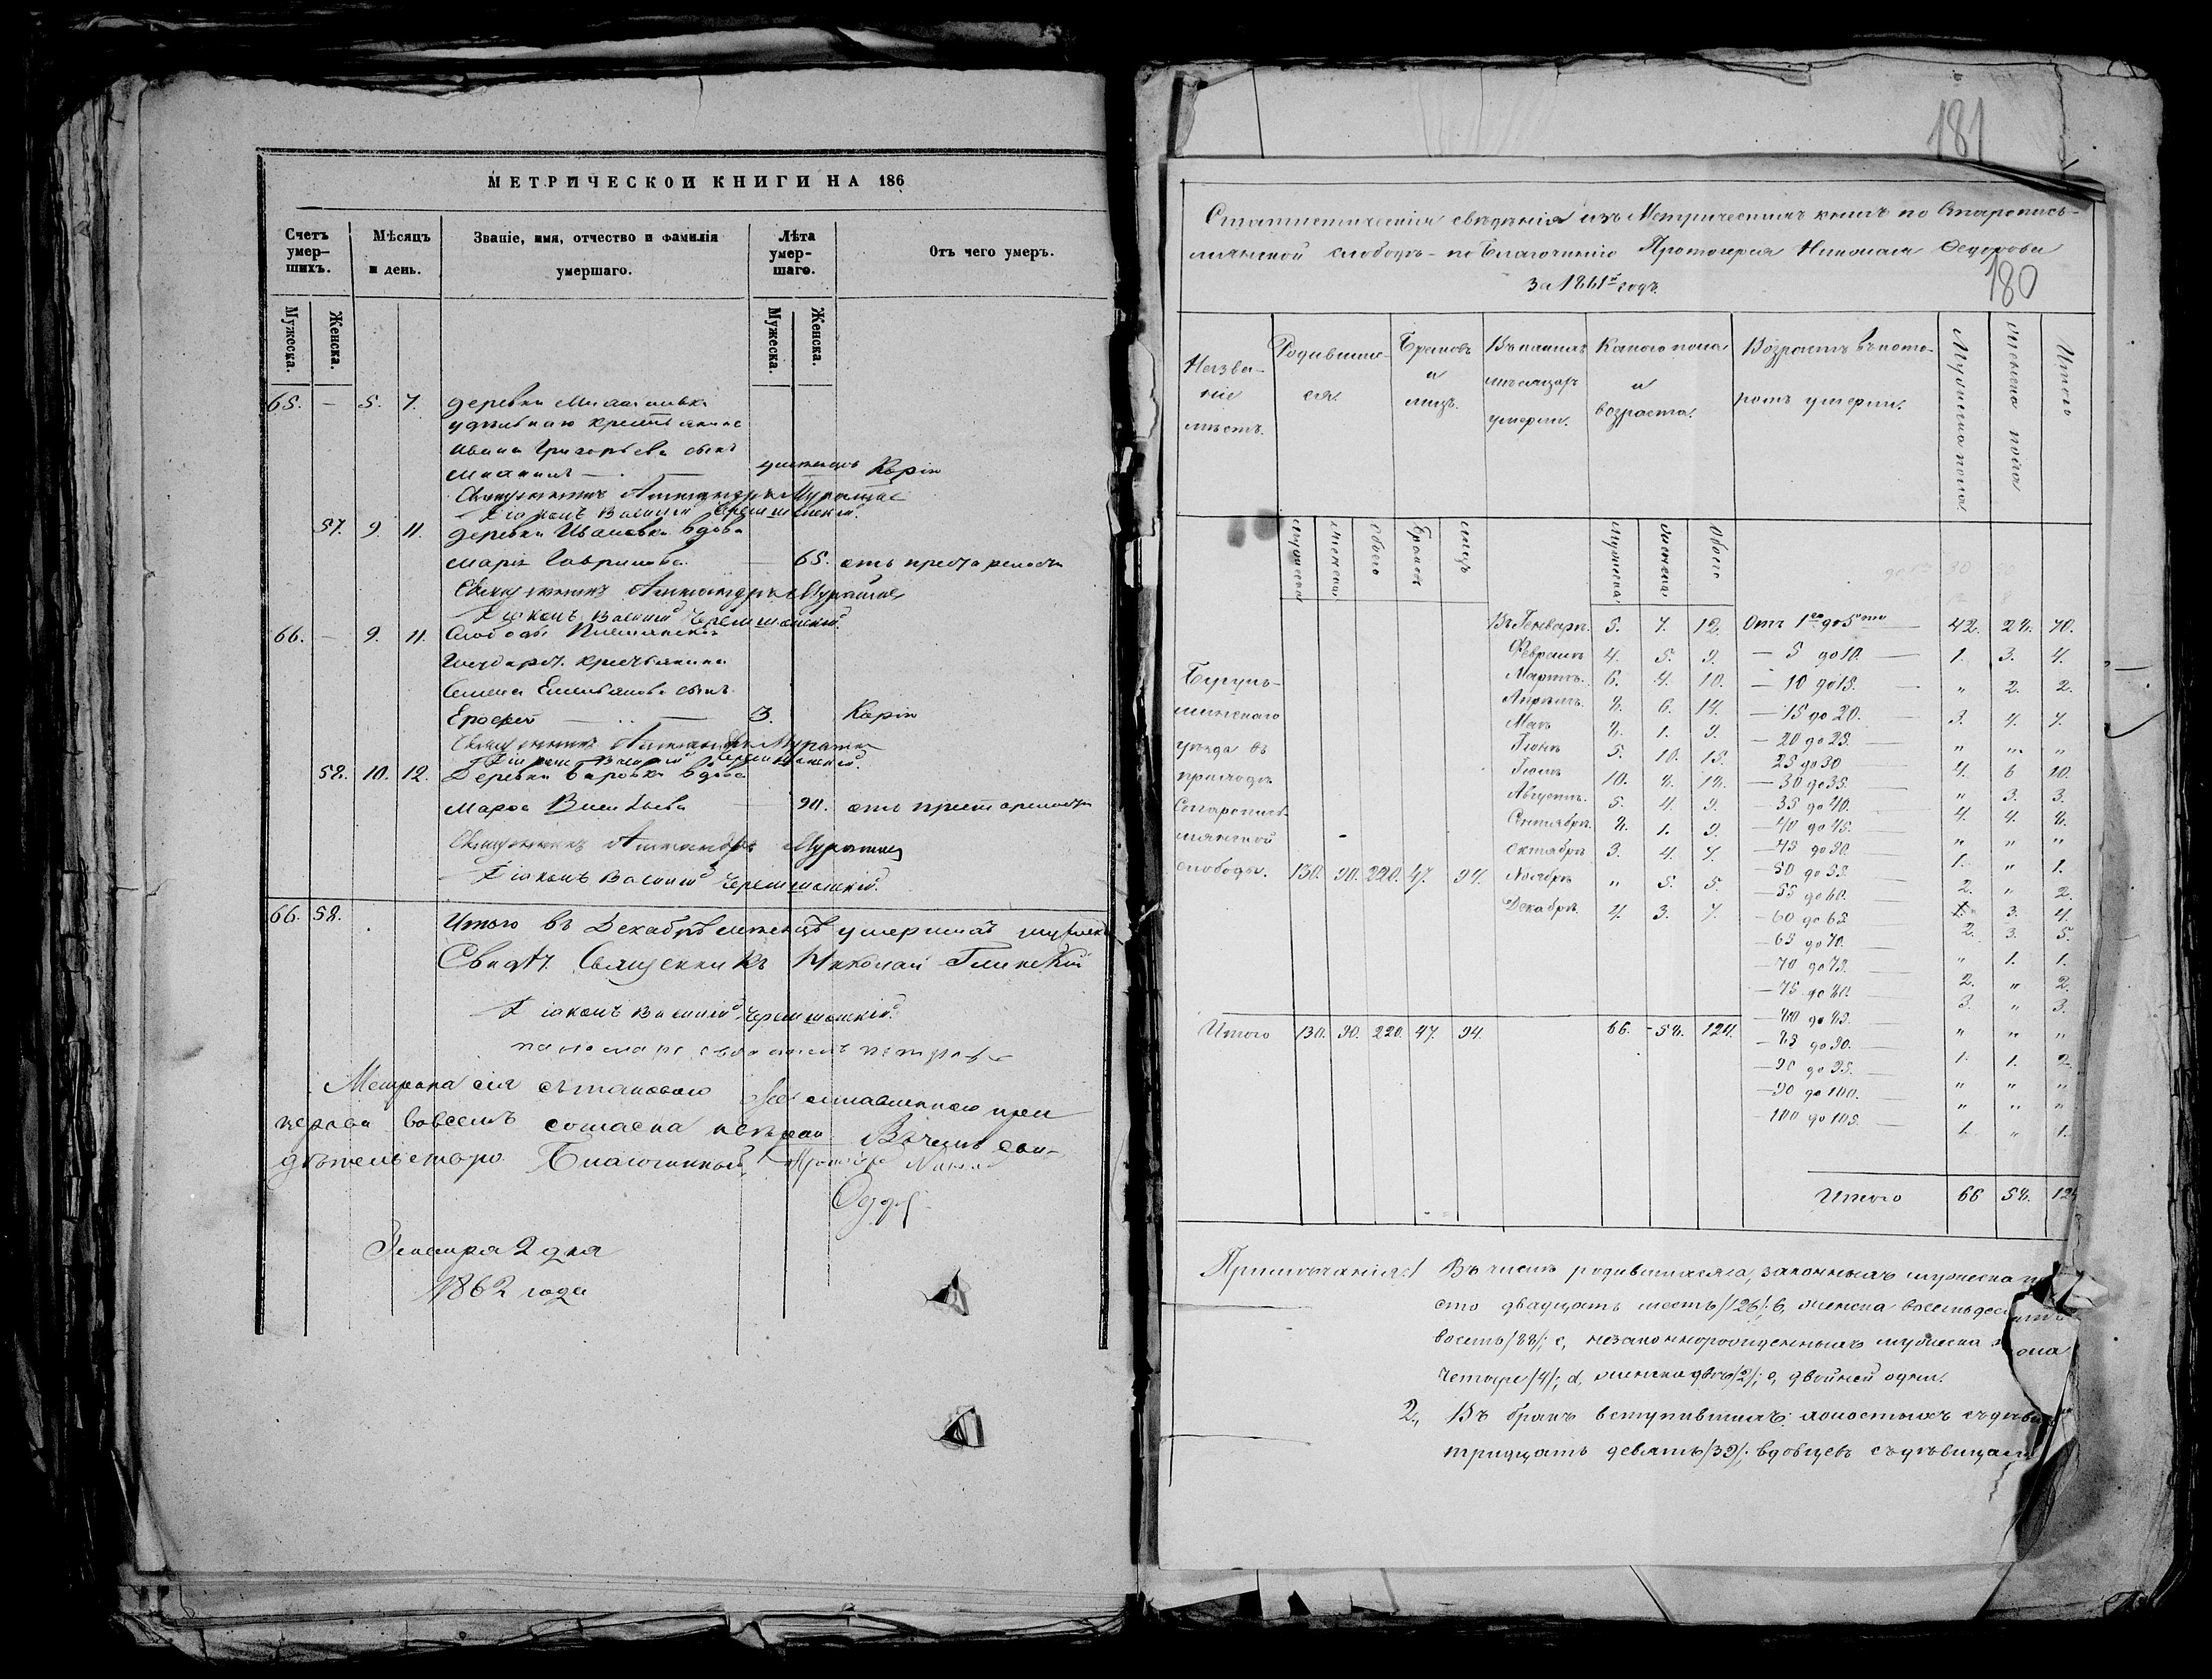 МЕТРИЧЕСКОЙ КНИГИ НА 186
Счетъ умер-шихъ.
Мѣсяцъ и день.
Званіе, имя, отчество и фамилія умершаго.
Лѣта умер-шаго.
Отъ чего умеръ.
Мужеска. Женска. Мужеска. Женска.
65. — 5. 7. деревни
удѣльнаго крестьянина
Ивана Григорьева сынъ
Михаилъ — Корію
Священникъ Александръ
Діаконъ Василий Черемшанский.
57. 9. 11. деревни Ивановки вдова
Марія Гаврилова — 65. отъ престарелости
Священникъ Александръ
Діаконъ Василий Черемшанский.
66. — 9. 11. Слободы Письмянской
Государст. крестьянина
Семена Емельянова сынъ
Ерофей — 3. Корію
Священникъ Александръ
Діаконъ Василий Черемшанский.
58. 10. 12. Деревни вдова
Марфа — 90. отъ престарелости
Священникъ Александръ
Діаконъ Василий Черемшанский.
66. 58. Итого въ Декабрѣ месяцѣ умершихъ
Свидѣт. Священникъ Николай Глинский
Діаконъ Василий Черемшанский.
пономарь
Метрика сія съ таковою
вовсемъ согласна Въ чемъ сви-
дѣтельствую Благочинный
Генваря 2 дня
1862 года
181
Статистическія свѣдѣнія изъ Метрическихъ книгъ по Старопись-
мянской слободѣ – по благочинію Протоіерея Николая Ѳедорова
за 1861й годъ.
180
Назва-ніе мѣстъ.
Родивших-ся.
Браковъ и лицъ.
Въ какихъ мѣсяцахъ умерли.
Какого пола и возраста.
Возрастъ въ кото-ромъ умерли.
Мужеска пола.
Женска пола
Итого
мужеска женска обоего браковъ лицъ мужеска. женска. обоего
Въ Генварѣ. 5. 7. 12. Отъ 1го до 5ти — 42. 28. 70.
Февралѣ 4. 5. 9. — 5 до 10. — 1. 3. 4.
Мартѣ. 6. 4. 10. — 10 до 15. — " 2. 2.
Апрѣлѣ. 8. 6. 14. — 15 до 20. — 3. 4. 7.
Маѣ 8. 1. 9. — 20 до 25. — " " "
Іюнѣ 5. 10. 15. 25 до 30 — 4. 6 10.
Іюлѣ 10. 8. 18. — 30 до 35. — " 3. 3.
Августѣ. 5. 4. 9. — 35 до 40. — 4. 4. 8.
Сентябрѣ. 8. 1. 9. — 40 до 45. — " " "
Октябрѣ 3. 4. 7. — 45 до 50. — 1. " 1.
Ноябрѣ " 5. 5. — 50 до 55. — 2. " 2.
Декабрѣ. 4. 3. 7. — 55 до 60. — 1. 3. 4.
— 60 до 65 — 2. 3. 5.
— 65 до 70. — " 1. 1.
— 70 до 75. — 2. " 2.
— 75 до 80. — 3. " 3.
— 80 до 85. — " " "
— 85 до 90. — 1. 1. 2.
— 90 до 95. — " " "
— 90 до 100. — " " "
— 100 до 105. — 1. " 1.
Бугуль-
минскаго
уѣзда въ
приходѣ
Старопись-
мянской
слободы. 130. 90. 220. 47. 94.
Итого 130. 90. 220. 47. 94. 66. 58. 124.
Итого 66 58. 124
Примѣчанія: 1 Въ числѣ родившихся а, законныхъ мужеска
сто двадцать шесть /126/; б, женска восемьдесятъ
восемь /88/; с, незаконнорожденныхъ мужеска пола
четыре /4/; d, женска двѣ /2/; е, двойней одни.
2, Въ бракъ вступившихъ: холостыхъ съ
тридцать девять /39/; вдовцевъ съ дѣвицами